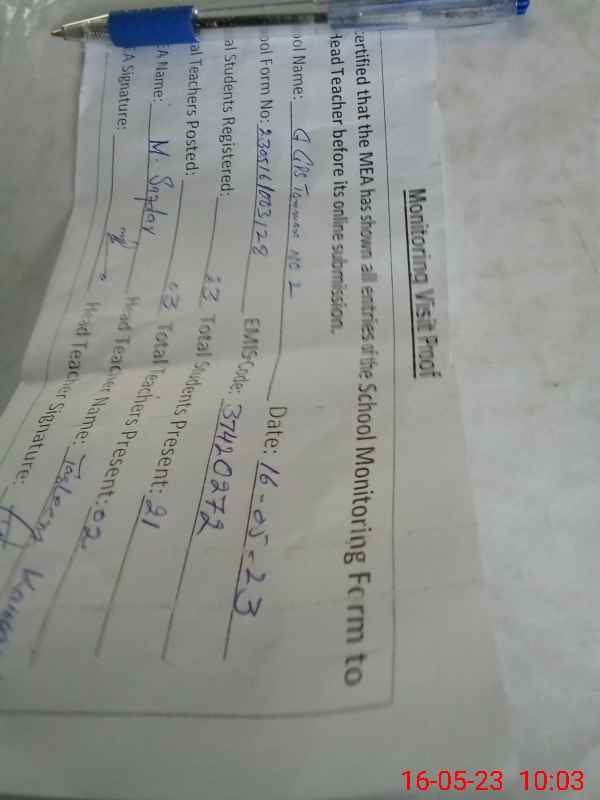 Monitoring Visit Proof
certified that the MEA has shown all entries of the School Monitoring Form to
Head Teacher before its online submission.
ool Name: G GPS NO 2 Date: 16-05-23
ool Form No: 230516/003/28 EMIS Code: 37420272
al Students Registered: 23 Total Students Present: 21
al Teachers Posted: 03 Total Teachers Present: 02
EA Name: M. Head Teacher Name:
EA Signature: Head Teacher Signature:
16-05-23 10:03